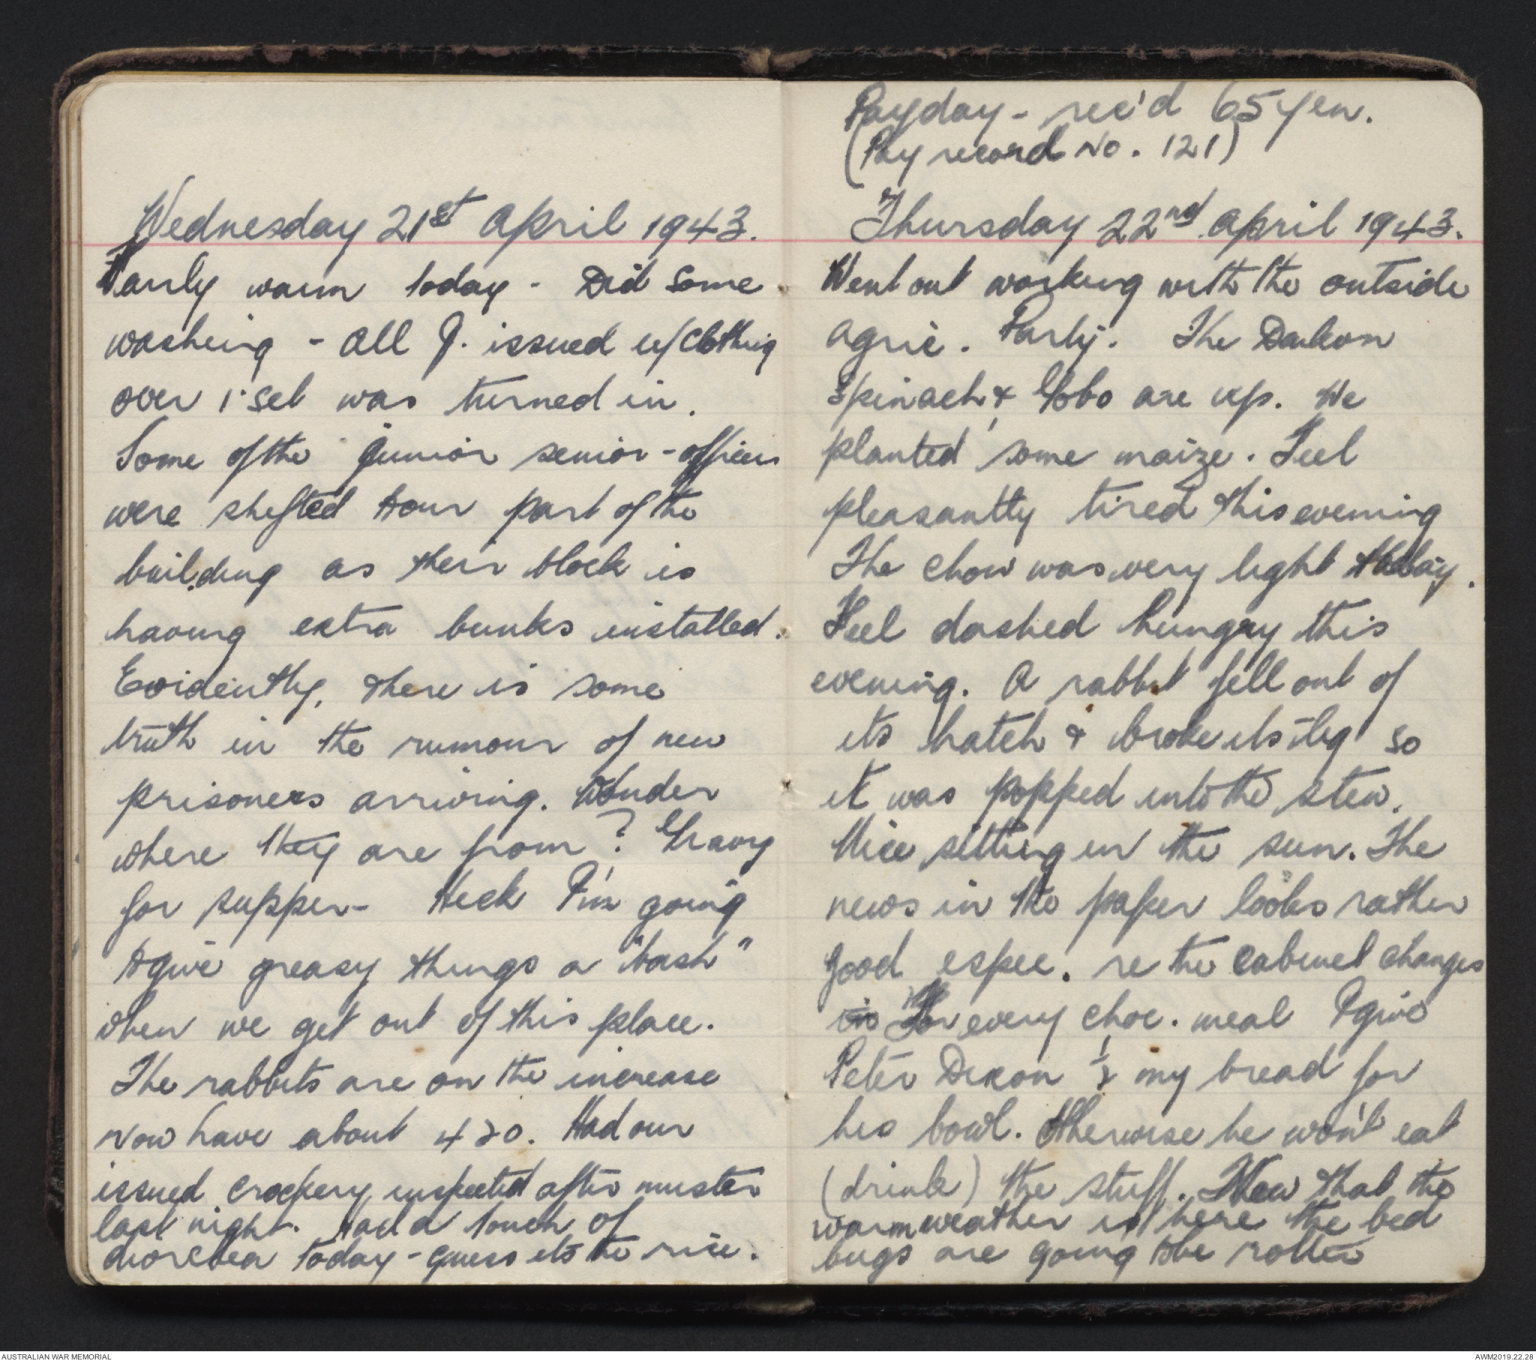 Wednesday 21st April 1943.
Fairly warm today - Did some
washing - all J. issued u/clothing
over 1 set was turned in.
Some of the junior senior-officers
were shifted to our part of the
building as their block is
having extra bunks installed.
Evidently, there is some
truth in the rumour of new
prisoners arriving. Wonder
where they are from? Gravy
for supper - Heck I'm going
to give greasy things a "bash"
when we get out of this place.
The rabbits are on the increase
Now have about 420. Had our
issued crockery inspected after muster
last night. Had a touch of
today - guess its the rice.
Payday - rec'd 65 yen.
(Pay record No. 121)
Thursday 22nd April 1943.
Went out working with the outside
agric. Party. The Daikon
Spinach & Gobo are up. We
planted some maize. Feel
pleasantly tired this evening
The chow was very light today.
Feel dashed hungry this
evening. A rabbit fell out of
its hatch & broke its leg so
it was popped into the stew.
Nice sitting in the sun. The
news in the paper looks rather
good espec. re the cabinet changes
in For every choc. meal I give
Peter Dixon ½ my bread for
his bowl. Otherwise he won't eat
(drink) the stuff. Now that the
warm weather is here the bed
bugs are going to be rotten